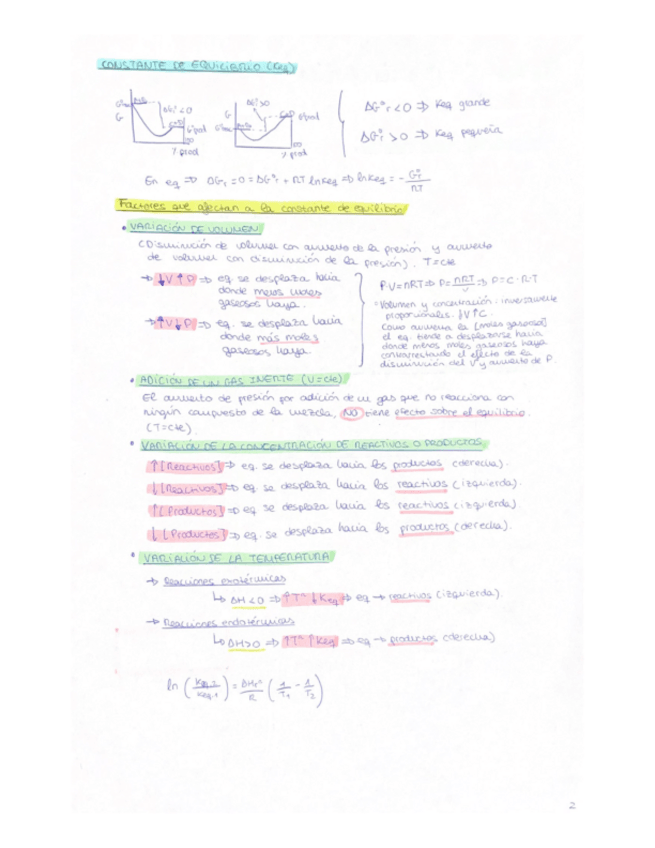 CONSTANTE DE EQUILIBRIO (Keq)
ΔG°r<0 ⇒ Keq grande
ΔG°r >0 ⇒ Keq pequeña
G
ΔG°r<0
G°prod
y prod
G
ΔG°r>0
G°prod
y prod
En eq ⇒ ΔGr = 0 = ΔG°r + RT lnKeq ⇒ lnKeq = - G°r / RT
Factores que afectan a la constante de equilibrio
• VARIACIÓN DE VOLUMEN
(Disminución de volumen con aumento de la presión y aumento
de volumen con disminución de la presión). T=cte
→ ↓V ↑P ⇒ eq. se desplaza hacia
donde menos moles
gaseosos haya.
→ ↑V ↓P ⇒ eq. se desplaza hacia
donde más moles
gaseosos haya.
P·V=nRT ⇒ P= nRT / V ⇒ P=C·R·T
Volumen y concentración inversamente
proporcionales. ↓V ↑C.
Como aumenta la [moles gaseosos]
el eq. tiende a desplazarse hacia
donde menos moles gaseosos haya
contrarrestando el efecto de la
disminución del V y aumento de P.
• ADICIÓN DE UN GAS INERTE (V=cte)
El aumento de presión por adición de un gas que no reacciona con
ningún compuesto de la mezcla, NO tiene efecto sobre el equilibrio.
(T=cte)
• VARIACIÓN DE LA CONCENTRACIÓN DE REACTIVOS O PRODUCTOS
↑[Reactivos] ⇒ eq. se desplaza hacia los productos (derecha).
↓[Reactivos] ⇒ eq. se desplaza hacia los reactivos (izquierda).
↑[Productos] ⇒ eq. se desplaza hacia los reactivos (izquierda).
↓[Productos] ⇒ eq. se desplaza hacia los productos (derecha).
• VARIACIÓN DE LA TEMPERATURA
→ Reacciones exotérmicas
↳ ΔH<0 ⇒ ↑Tª ↓Keq ⇒ eq → reactivos (izquierda).
→ Reacciones endotérmicas
↳ ΔH>0 ⇒ ↑Tª ↑Keq ⇒ eq → productos (derecha)
ln (Keq,2 / Keq,1) = ΔHr° / R (1/T1 - 1/T2)
2